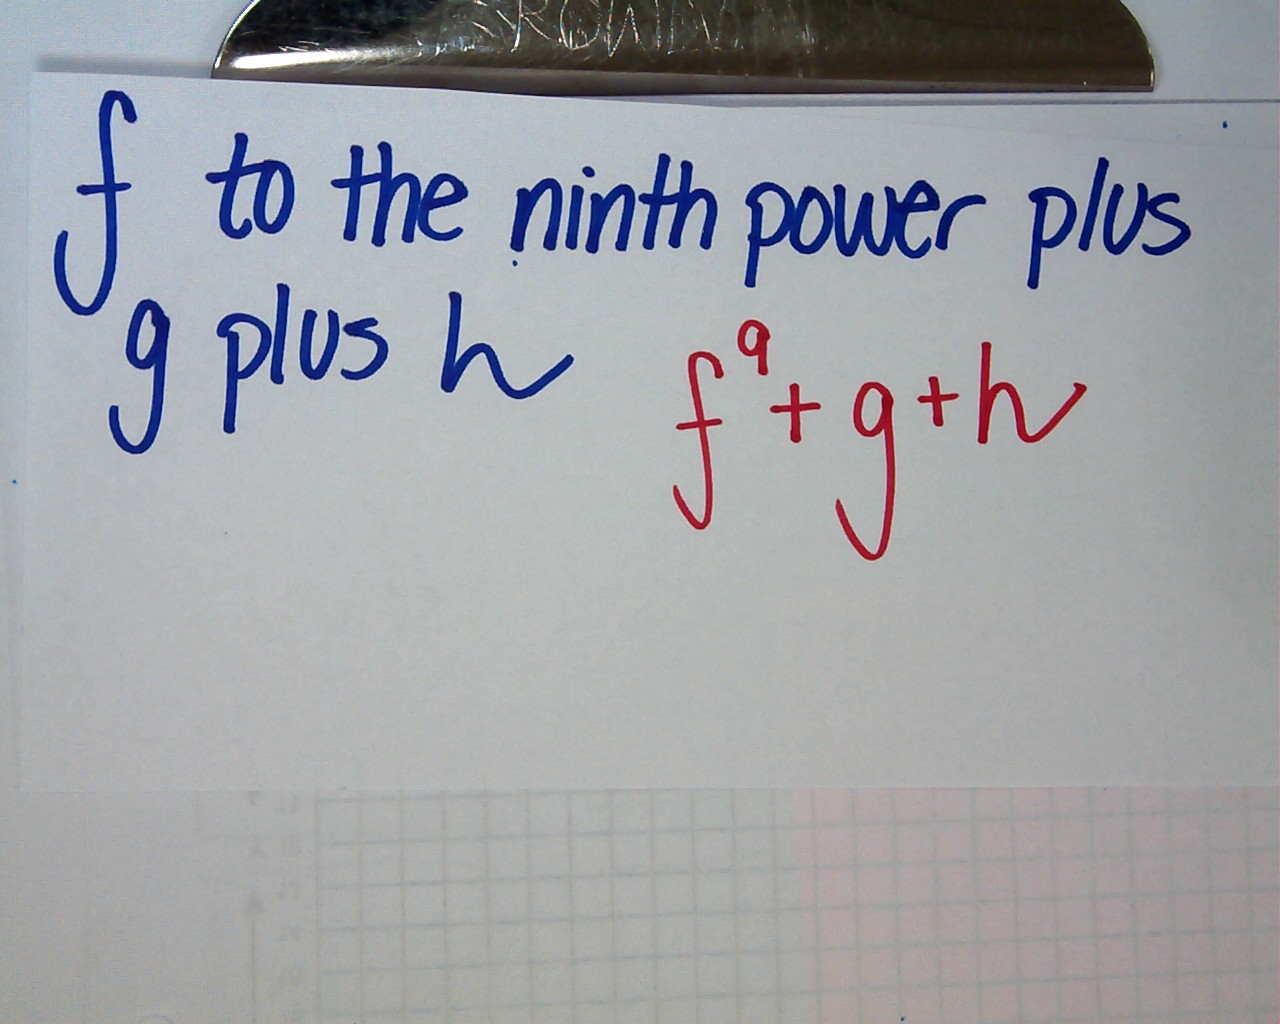 f to the ninth power plus
g plus h
f⁹ + g + h